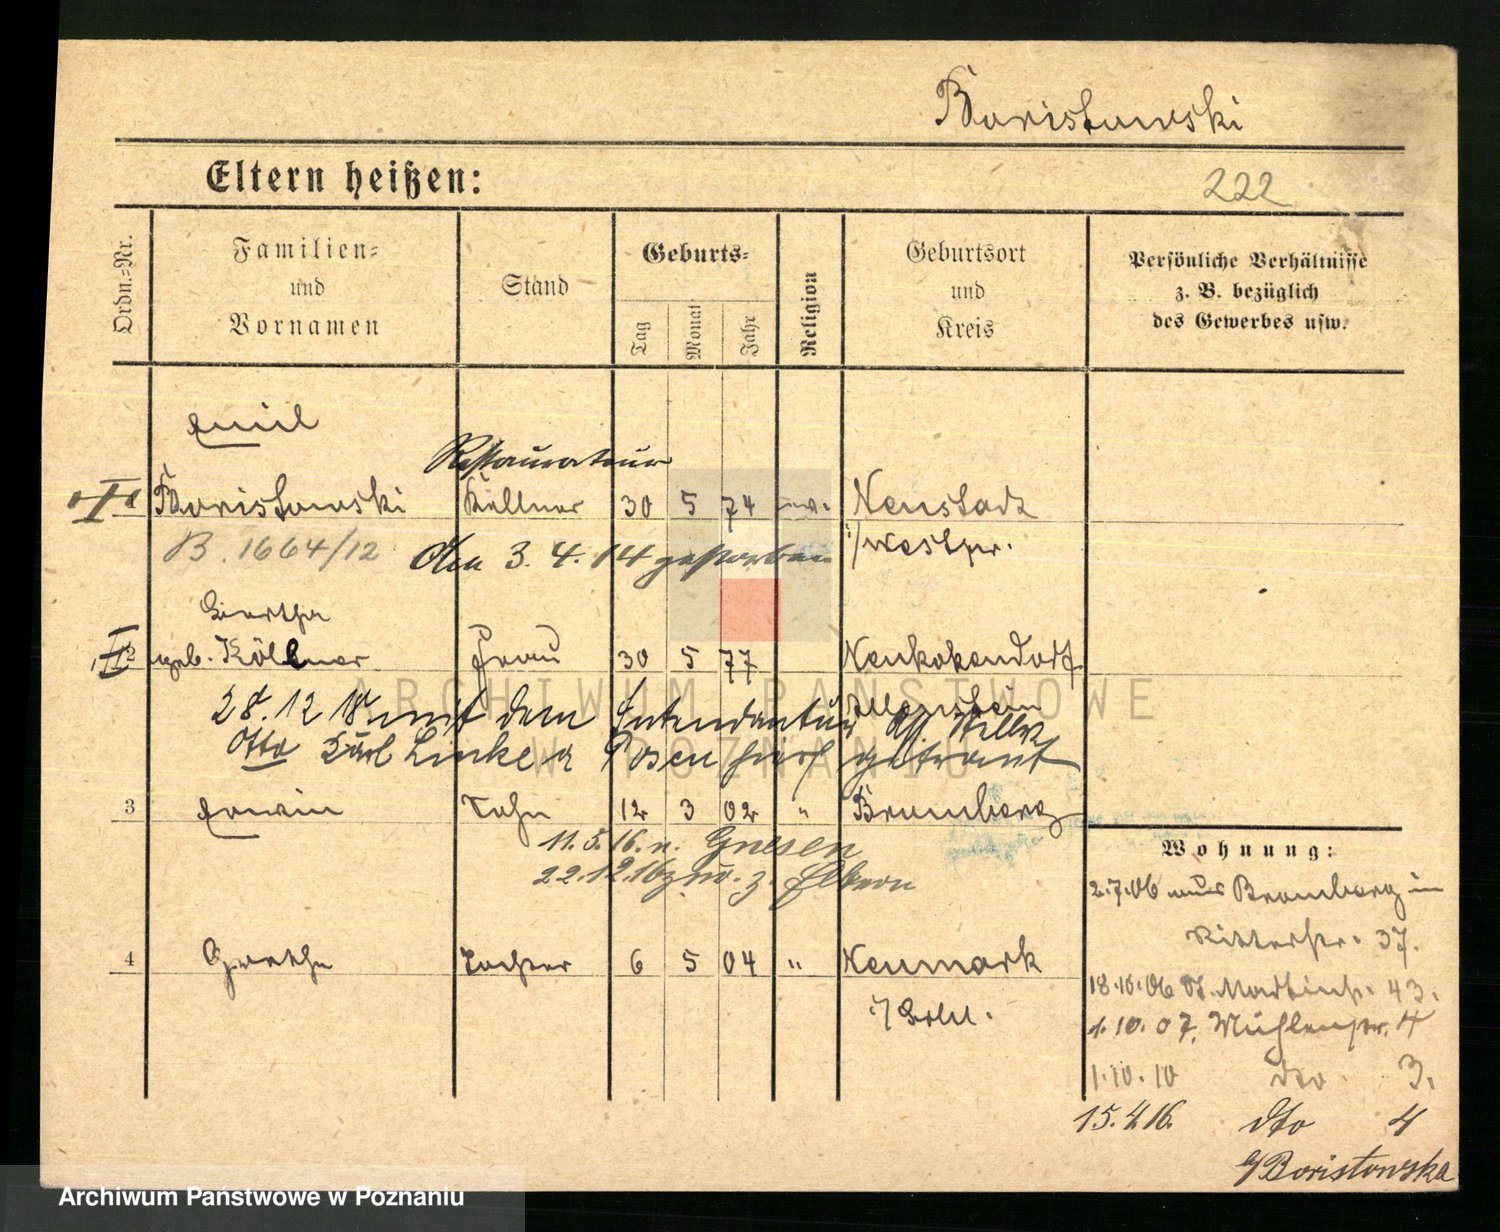 Boristowski
Eltern heißen:
222
Ordn.=Nr.
Familien=
und
Vornamen
Stand
Geburts=
Tag
Monat
Jahr
Religion
Geburtsort
und
Kreis
Persönliche Verhältnisse
z. B. bezüglich
des Gewerbes usw.
Emil
Restaurateur
I 1 Boristowski Kellner 30 5 74 ev. Neustadt
B. 1664/12 den 3. 4. 14 gestorben i/Westpr.
Bertha
II 2 geb. Köllner Frau 30 5 77 Neukokendorf
Allenstein
28. 12 18 mit dem Intendantur
Otto Karl Linke a Posen hier getraut
3 Erwin Sohn 12 3 02 " Bromberg
11. 5. 16. n. Gnesen
22.12.16 zur. z. Eltern
4 Grethe Tochter 6 5 04 " Neumark
Wohnung:
2.7.06 aus Bromberg in
Ritterstr. 37.
18.10.06 St. Martinstr. 43.
1. 10. 07. Mühlenstr. 4
1.10.10 dto 3.
15. 4. 16. dto 4
Boristowska
ARCHIWUM PAŃSTWOWE
W POZNANIU
Archiwum Państwowe w Poznaniu